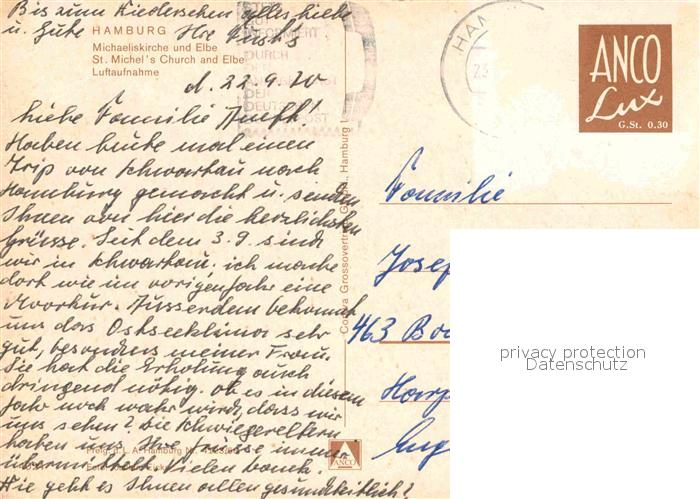 Bis zum Wiedersehen alles Liebe
u. Gute Ihre
HAMBURG
Michaeliskirche und Elbe
St. Michel's Church and Elbe
Luftaufnahme
d. 22.9.70
Liebe Familie
Haben heute mal einen
Trip von Schwartau nach
Hamburg gemacht u. senden
Ihnen von hier die herzlichsten
Grüsse. Seit dem 3.9. sind
wir in Schwartau. ich mache
dort wie im vorigen Jahr eine
Moorkur. Ausserdem bekommt
uns das Ostseeklima sehr
gut, besonders meiner Frau.
Sie hat die Erholung auch
dringend nötig. ob es in diesem
Jahr noch wahr wird, dass wir
uns sehen? Die Schwiegereltern
haben uns Ihre Grüsse immer
übermittelt. Vielen Dank.
Wie geht es Ihnen allen gesundheitlich?
INFORMIERT
DURCH
DER
DEUTSCHEN
POST
HAM
23
ANCO
Lux
G.St. 0.30
Familie
Josef
463 Bo
privacy protection
Datenschutz
ANCO